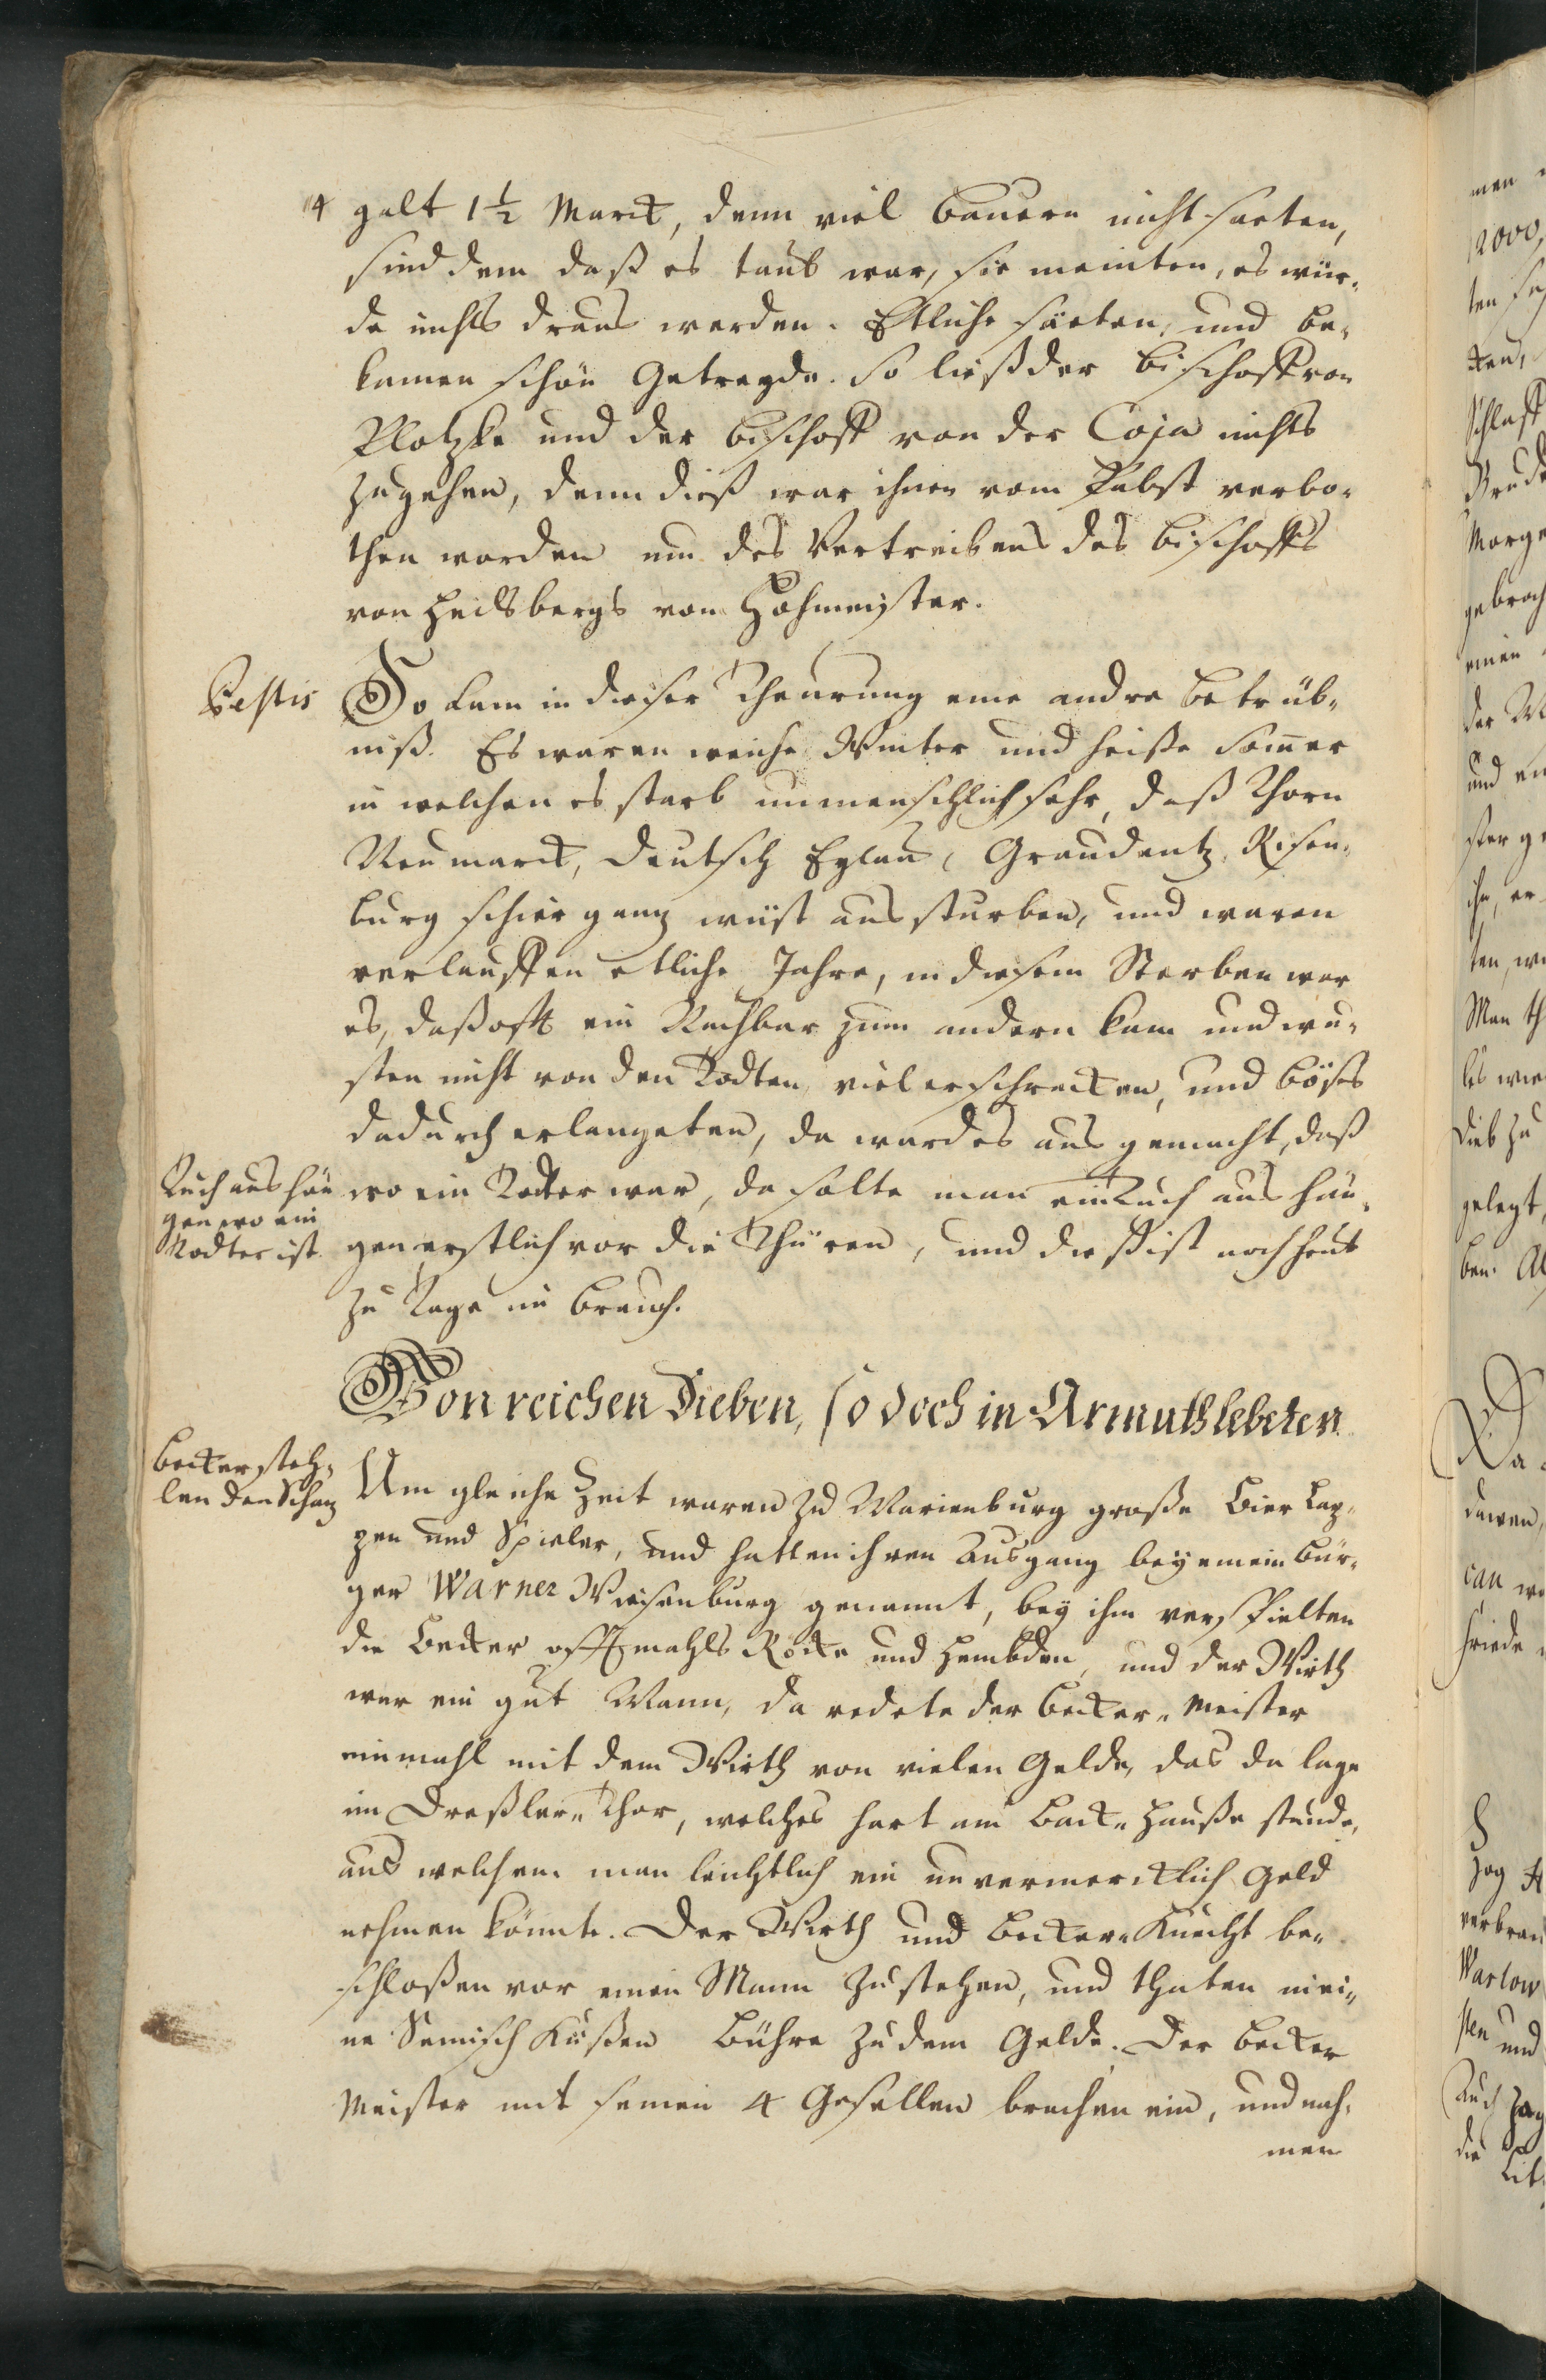 4 galt 1 1/2 Marck, denn viel Bauern nicht saeten,
sind dem daß es taub war, sie meinten, es wür-
de nichts draus werden. Etliche säeten, und be-
kamen schön Getreyde. So ließ der Bischoff von
Plotzke und der Bischoff von der Coja nichts
zugehen, denn dieß war ihnen vom Pabst verbo-
then worden um des Vertreibens des Bischoffs
von Heilsbergs vom Hohmeister.
Pestis
So kam in dieser Theurung eine andre Betrüb-
niß. Es waren weiche Winter und heiße Somer
in welchen es starb unmenschlich sehr, daß Thorn
Neumarck, Deutsch Eylau, Graudentz, Risen-
burg schier ganz wüst aussturben, und waren
verlauffen etliche Jahre, in diesem Sterben war
es, daß offt ein Nachbar zum andern kam und wu-
sten nicht von den Todten, viel erschrecken, und böses
dadurch erlangeten, da ward es ausgemacht, daß
Tuch aus hän
gen wo ein
Todter ist.
wo ein Todter war, da solte man ein Tuch aus hän-
gen, erstlich vor die Thüren, und dieß ist noch heut
zu Tage im Brauch.
Von reichen Dieben, so doch in Armuth lebeten
Becker steh-
len den Schaz
Um gleiche Zeit waren zu Marienburg große Bier Lap-
pen und Spieler, und hatten ihren Ausgang bey einem Bür-
ger Warner Wiesenburg genannt, bey ihm verspielten
die Becker offtmahls Röcke und Hembden, und der Wirth
war ein gut Mann, da redete der Becker-Meister
einmahl mit dem Wirth von vielen Gelde, das da lage
im Dreßler-Thor, welches hart am Back-Hauße stunde,
aus welchem man leichtlich ein unvermercklich Geld
nehmen könnte. Der Wirth und Becker-Knecht be-
schloßen vor einen Mann zu stehen, und thaten in ei-
ne Semisch Küßen Bühre zu dem Gelde. Der Becker
Meister mit seinen 4 Gesellen brachen ein, und nah-
men